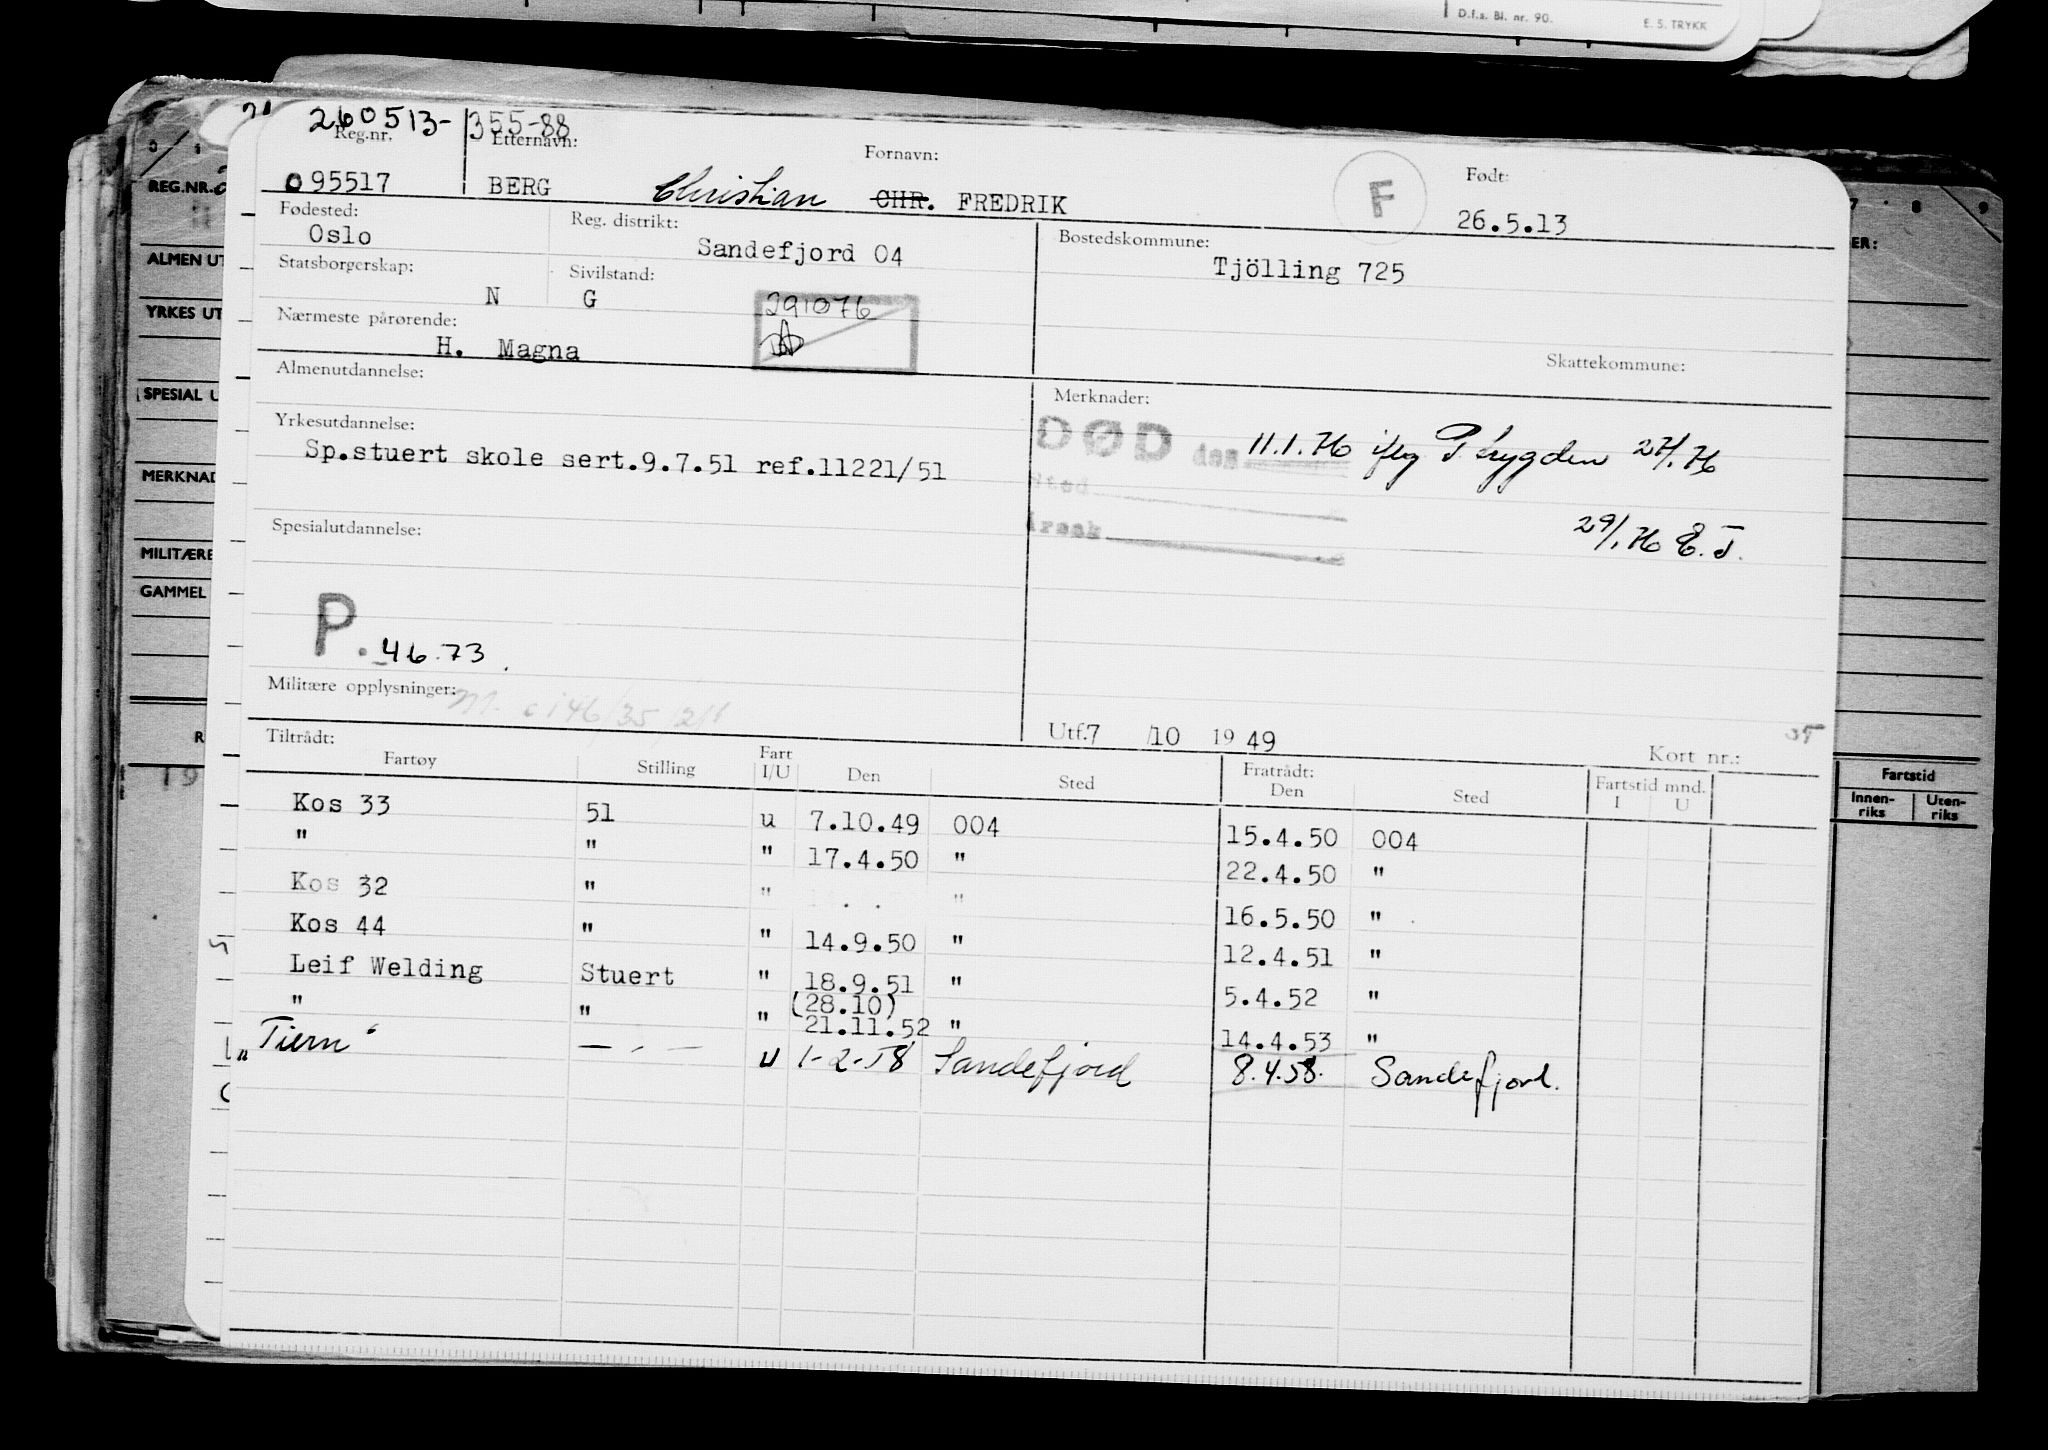 D.f.s. Bl. nr. 90. E. S. TRYKK
260513- 355-88
Reg.nr. Etternavn: Fornavn: Født:
095517 BERG Christian CHR. FREDRIK F 26.5.13
Fødested: Reg. distrikt: Bostedskommune:
Oslo Sandefjord 04 Tjölling 725
Statsborgerskap: Sivilstand:
N G 291076
Nærmeste pårørende:
H. Magna
Skattekommune:
Almenutdannelse: Merknader:
DØD den 11.1.76 iflg 27/1.76
Yrkesutdannelse:
Sp.stuert skole sert.9.7.51 ref.11221/51
Sted
29/1.76 E. J.
Årsak
Spesialutdannelse:
P. 4.6.73.
Militære opplysninger:
Utf.7 /10 19 49 Kort nr.:
Tiltrådt: Fratrådt: Fartstid mnd.
Fartøy Stilling Fart I/U Den Sted Den Sted I U
Kos 33 51 u 7.10.49 004 15.4.50 004
" " " 17.4.50 " 22.4.50 "
Kos 32 " " . . " 16.5.50 "
Kos 44 " " 14.9.50 " 12.4.51 "
Leif Welding Stuert " 18.9.51 " 5.4.52 "
(28.10)
" " " 21.11.52 " 14.4.53 "
"Tiern" — . — u 1-2-58 Sandefjord 8.4.58. Sandefjord.
REG.NR.
ALMEN UT
YRKES UT
SPESIAL U
MERKNAD
MILITÆRE
GAMMEL
R
19
7 8 9
ER:
Fartstid
Innenriks Utenriks